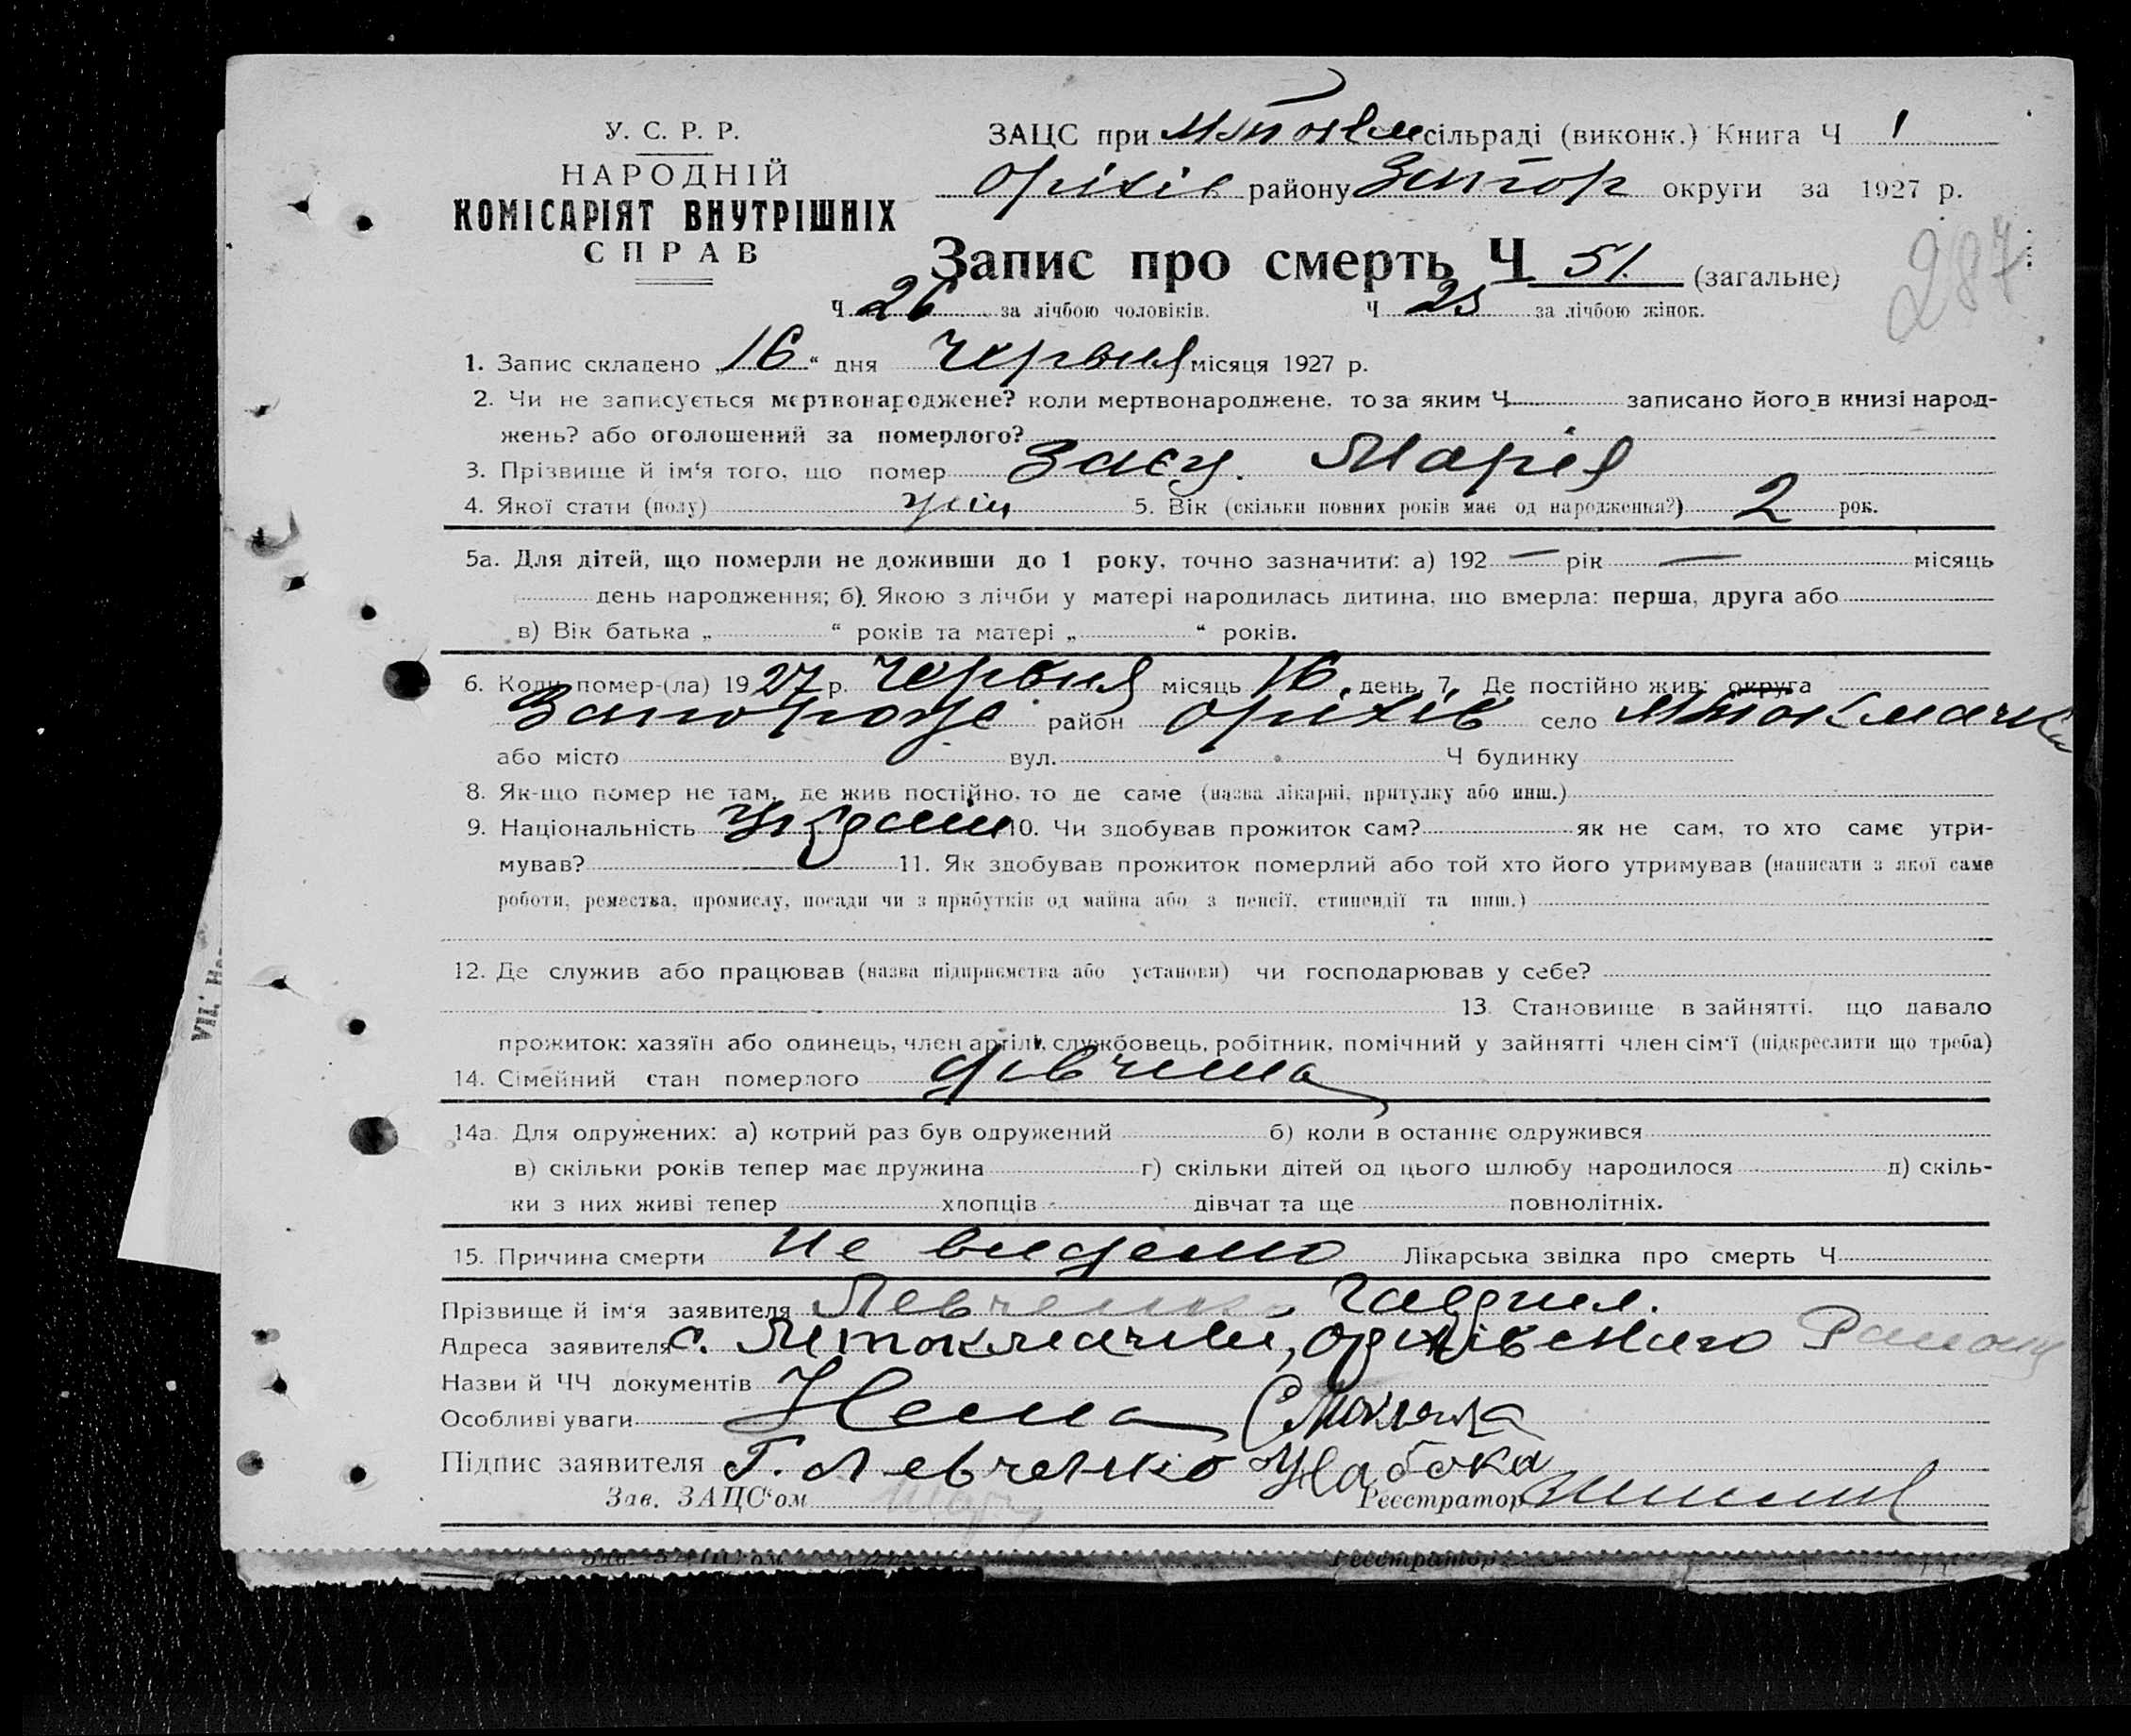 У. С. Р. Р.
НАРОДНІЙ
КОМІСАРІЯТ ВНУТРІШНІХ
СПРАВ
ЗАЦС при сільраді (виконк.) Книга Ч 1
Оріхів району Запор округи за 1927 р.
Запис про смерть Ч 51. (загальне)
287
Ч 26 за лічбою чоловіків. Ч 25 за лічбою жінок.
1. Запис складено „16“ дня червня місяця 1927 р.
2. Чи не записується мертвонароджене? коли мертвонароджене, то за яким Ч записано його в книзі народ-
жень? або оголошений за померлого?
3. Прізвище й ім‘я того, що помер Заєц. Марія
4. Якої стати (полу) жін 5. Вік (скільки повних років має од народження?) 2 рок.
5а. Для дітей, що померли не доживши до 1 року, точно зазначити: а) 192 — рік — місяць
день народження; б) Якою з лічби у матері народилась дитина, що вмерла: перша, друга або
в) Вік батька „ “ років та матері „ “ років.
6. Коли помер-(ла) 1927 р. червня місяць 16 день 7. Де постійно жив: округа
Запорожс район Оріхів село Мтокмачка
або місто вул. Ч будинку
8. Як-що помер не там, де жив постійно, то де саме (назва лікарні, притулку або инш.)
9. Національність 10. Чи здобував прожиток сам? як не сам, то хто саме утри-
мував? 11. Як здобував прожиток померлий або той хто його утримував (написати з якої саме
роботи, ремества, промислу, посади чи з прибутків од майна або з пенсії, стипендії та инш.)
12. Де служив або працював (назва підприємства або установи) чи господарював у себе?
13. Становище в зайнятті, що давало
прожиток: хазяїн або одинець, член артілі, службовець, робітник, помічний у зайнятті член сім‘ї (підкреслити що треба)
14. Сімейний стан померлого дівчина
14а. Для одружених: а) котрий раз був одружений б) коли в останнє одружився
в) скільки років тепер має дружина г) скільки дітей од цього шлюбу народилося д) скіль-
ки з них живі тепер хлопців дівчат та ще повнолітніх.
15. Причина смерти не видемо Лікарська звідка про смерть Ч
Прізвище й ім‘я заявителя Левченко Гаврил.
Адреса заявителя с. Мтокмачки, Оріхівського Району
Назви й ЧЧ документів
Особливі уваги Нема
Підпис заявителя Г. Левченко Набока
Зав. ЗАЦС‘ом Реєстратор
Зав. ЗАЦС‘ом Реєстратор